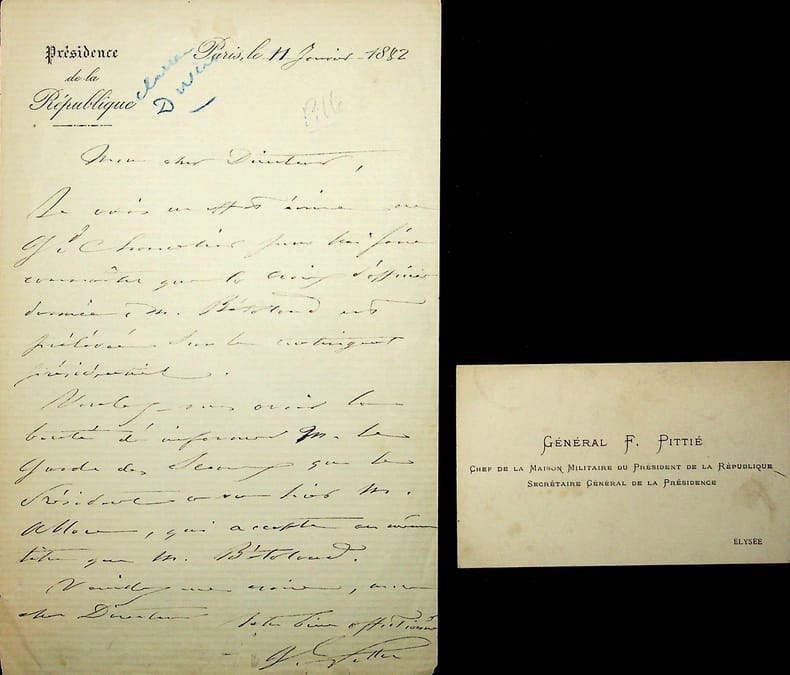 Présidence
de la
République
Paris, le 11 Janvier 1882
Mon cher Directeur,
Je vais en effet écrire au
Gd Chancelier pour lui faire
connaître que la croix d'officier
donnée à M. Bétolaud est
prélevée sur le contingent
présidentiel.
Veuillez avoir la
bonté d'informer M. le
Garde des Sceaux que le
Président a vu hier M.
Allou, qui accepte au même
titre que M. Bétolaud.
Veuillez me croire, mon
cher Directeur
Votre bien affectionné
GÉNÉRAL F. PITTIÉ
CHEF DE LA MAISON MILITAIRE DU PRÉSIDENT DE LA RÉPUBLIQUE
SECRÉTAIRE GÉNÉRAL DE LA PRÉSIDENCE
ELYSÉE